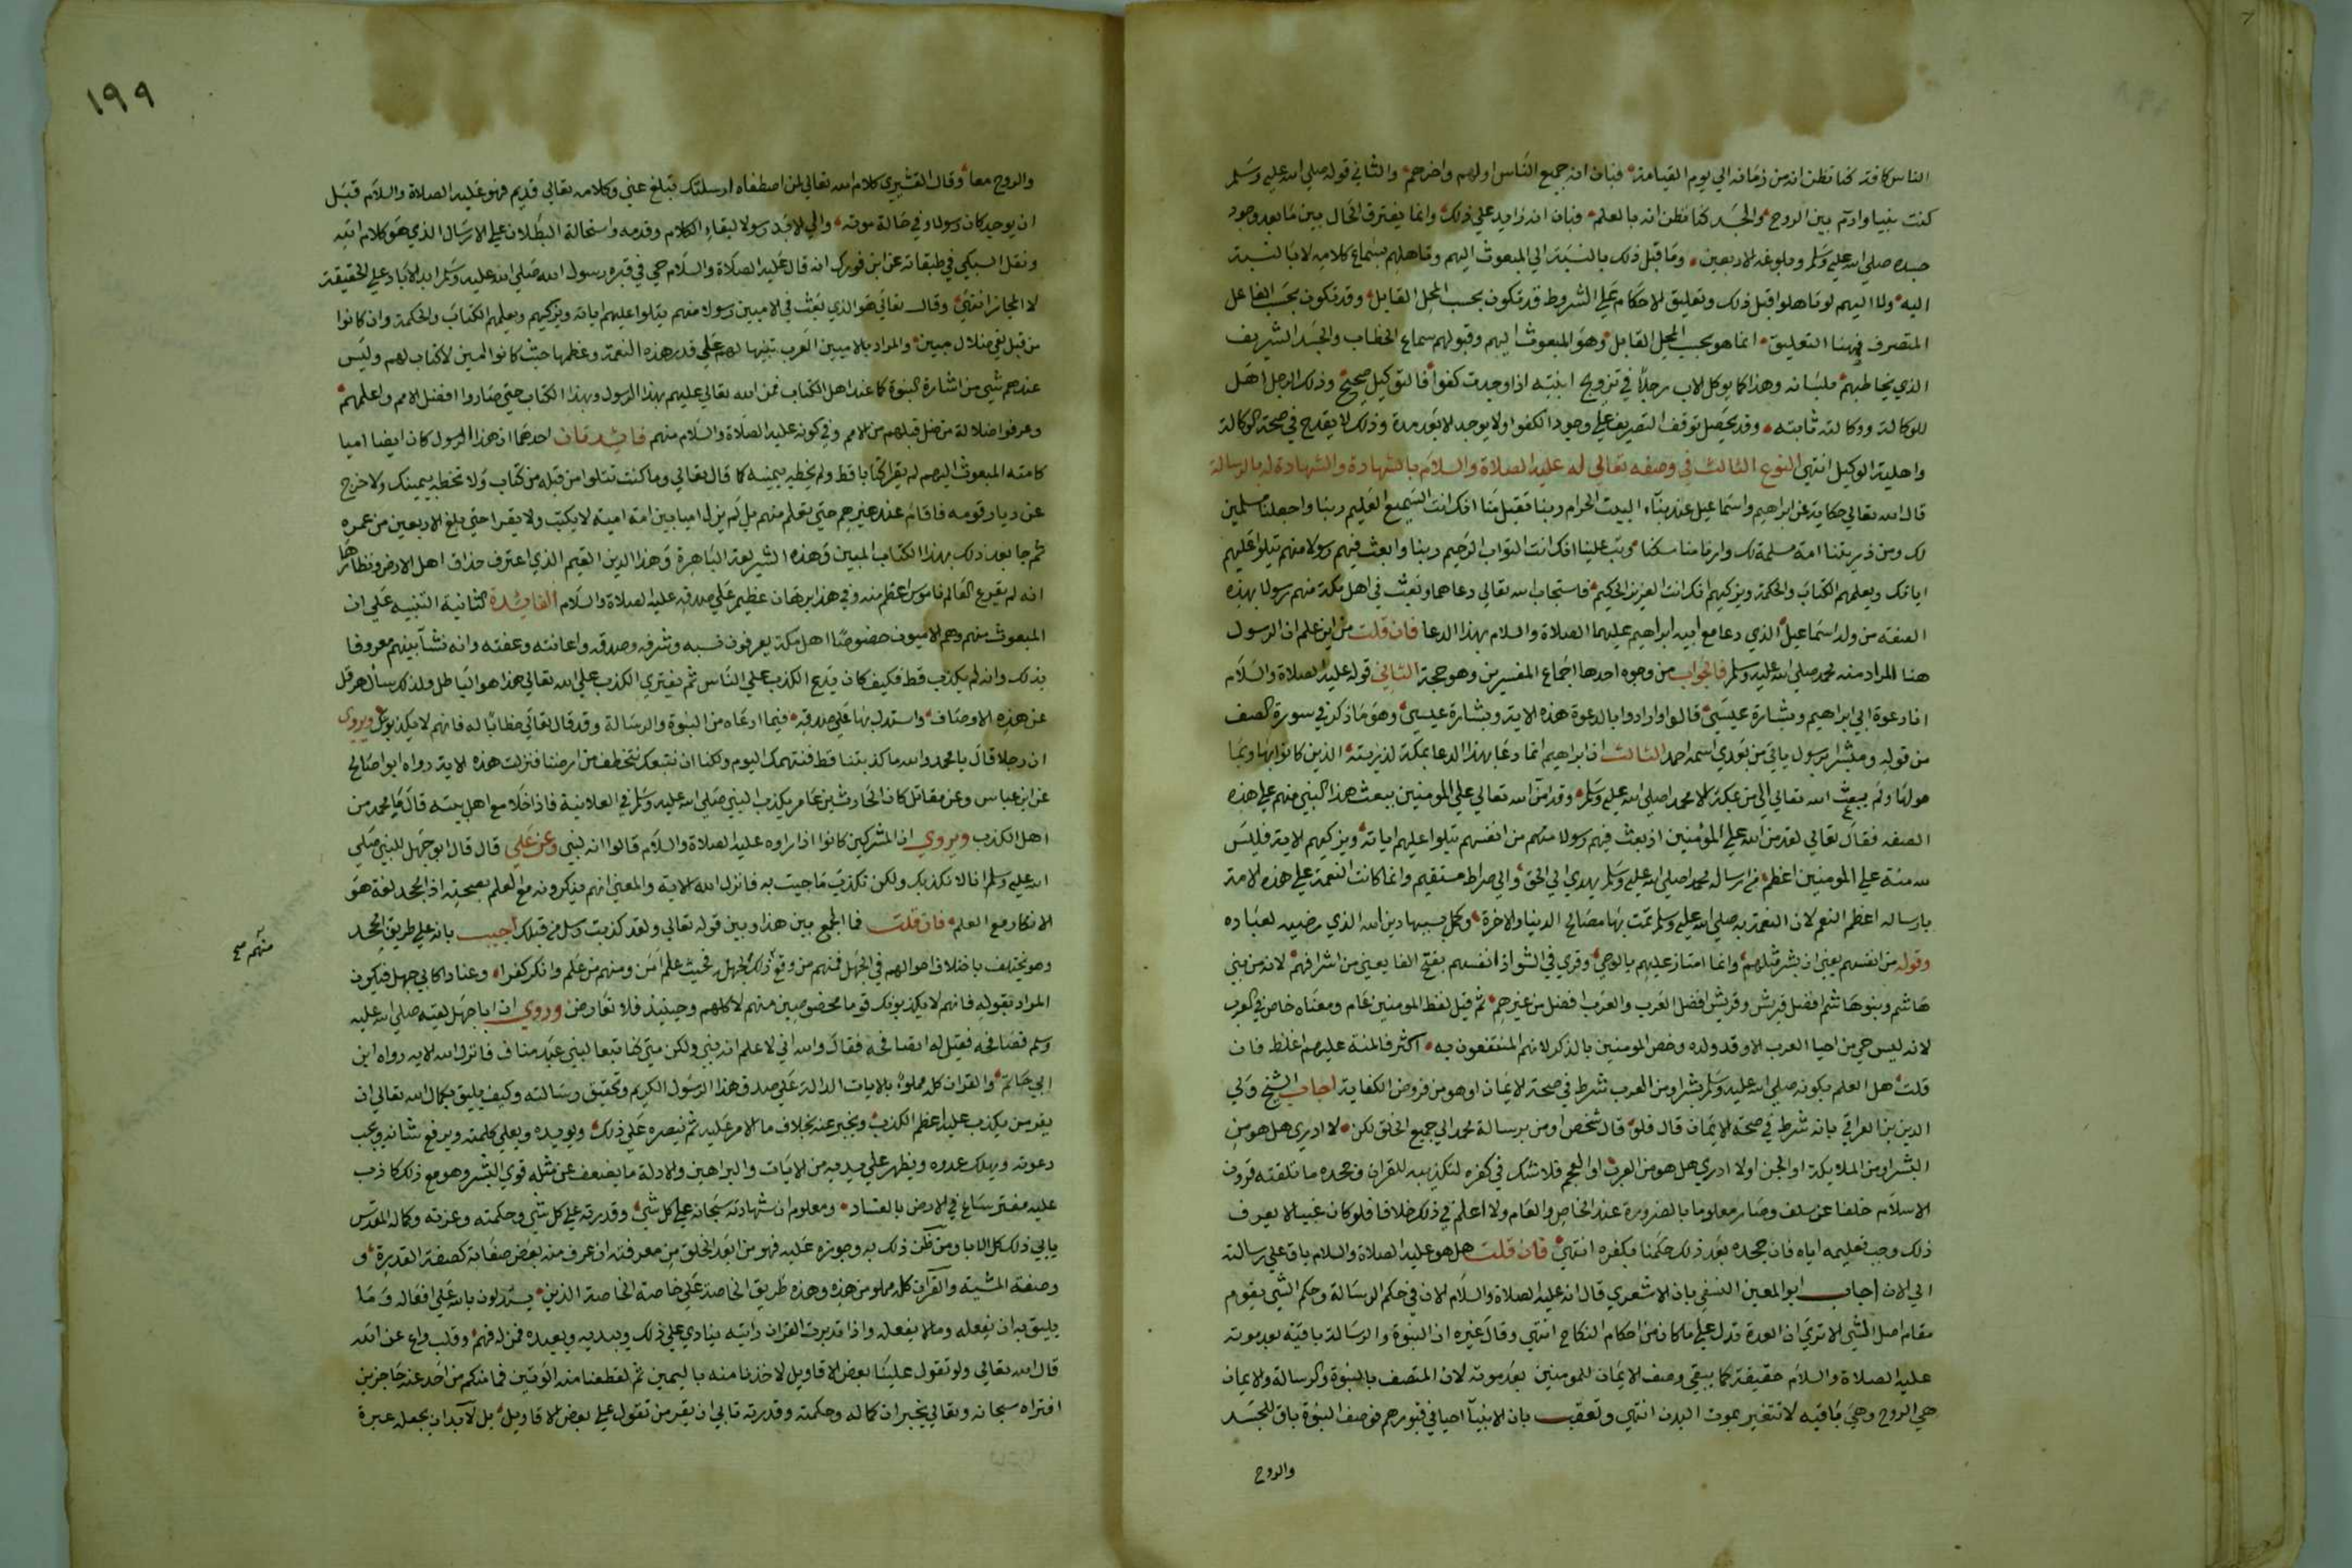 الناس كافة كنا نظن انه من زمانه الي يوم القيامة فبان انه جميع الناس اولهم واخرهم والثاني قوله صلي الله عليه وسلم
كنت نبيا وادم بين الروح والجسد كنا نظن انه بالعلم فبان انه زايد علي ذلك وانما يفترق الحال بين ما بعد وجود
جسده صلي الله عليه وسلم وبلوغه الاربعين وما قبل ذلك بالنسبة الي المبعوث اليهم وتاهلهم بسماع كلامه لا بالنسبة
اليه ولا اليهم لو تاهلوا قبل ذلك وتعليق الاحكام علي الشروط قد تكون بحسب المحل القابل وقد تكون بحسب الفاعل
المتصرف فهنا التعليق انما هو بحسب المحل القابل وهو المبعوث اليهم وقبولهم سماع الخطاب والجسد الشريف
الذي يخاطبهم بلسانه وهذا كما يوكل الاب رجلا في تزويج ابنته اذا وجدت كفوا فالتوكيل صحيح وذلك الرجل اهل
للوكالة ووكالته ثابته وقد يحصل توقف التصريف علي وجود الكفو ولا يوجد الا بعد مدة وذلك لا يقدح في صحة الوكالة
واهلية الوكيل انتهي النوع الثالث في وصفه تعالي له عليه الصلاة والسلام بالشهادة والشهادة له بالرسالة
قال الله تعالي حكاية عن ابراهيم واسماعيل عند بناء البيت الحرام ربنا تقبل منا انك انت السميع العليم ربنا واجعلنا مسلمين
لك ومن ذريتنا امة مسلمة لك وارنا مناسكنا وتب علينا انك انت التواب الرحيم ربنا وابعث فيهم رسولا منهم يتلوا عليهم
اياتك ويعلمهم الكتاب والحكمة ويزكيهم انك انت العزيز الحكيم فاستجاب الله تعالي دعاهما وبعث في اهل مكة منهم رسولا بهذه
الصفة من ولد اسماعيل الذي دعا مع ابيه ابراهيم عليهما الصلاة والسلام بهذا الدعا فان قلت من اين علم ان الرسول
هنا المراد منه محمد صلي الله عليه وسلم فالجواب من وجوه احدها اجماع المفسرين وهو حجة الثاني قوله عليه الصلاة والسلام
انا دعوة ابي ابراهيم وبشارة عيسي قالوا وارادوا بالدعوة هذه الاية وبشارة عيسي وهو ما ذكر في سورة الصف
من قوله ومبشرا برسول ياتي من بعدي اسمه احمد الثالث ان ابراهيم انما دعا بهذا الدعا بمكة لذريته الذين كانوا بها وبما
حولها ولم يبعث الله تعالي الي من بمكة الا محمدا صلي الله عليه وسلم وقد امن الله تعالي علي المومنين ببعث هذا النبي منهم علي هذه
الصفة فقال تعالي لقد من الله علي المؤمنين اذ بعث فيهم رسولا منهم من انفسهم يتلوا عليهم اياته ويزكيهم الاية فليس
لله منة علي المومنين اعظم من ارساله محمدا صلي الله عليه وسلم يهدي الي الحق والي صراط مستقيم وانما كانت النعمة علي هذه الامة
بارساله اعظم النعم لان النعمة به صلي الله عليه وسلم تمت بها مصالح الدنيا والاخرة وكمل بسببها دين الله الذي رضيه لعباده
وقوله من انفسهم يعني ان بشر مثلهم وانما امتاز عليهم بالوحي وقري في الشواذ انفسهم بفتح الفا يعني من اشرافهم لانه من بني
هاشم وبنو هاشم افضل قريش وقريش افضل العرب والعرب افضل من غيرهم ثم قيل لفظ المومنين عام ومعناه خاص في العرب
لانه ليس حي من احيا العرب الا وقد ولده وخص المومنين بالذكر لانهم المنتفعون به اكثر فالمنة عليهم اغلظ فان
قلت هل العلم بكونه صلي الله عليه وسلم بشرا ومن العرب شرط في صحة الايمان او هو من فروض الكفاية اجاب الشيخ ولي
الدين بن العراقي بانه شرط في صحة الايمان قال فلو قال شخص اومن برسالة محمد الي جميع الخلق لكن لا ادري هل هو من
البشر او من الملايكة او الجن او لا ادري هل هو من العرب او العجم فلا شك في كفره لتكذيبه للقران وجحده ما تلقته قرون
الاسلام خلفا عن سلف وصار معلوما بالضرورة عند الخاص والعام ولا اعلم في ذلك خلافا فلو كان غبيا لا يعرف
ذلك وجب تعليمه اياه فان جحده بعد ذلك حكمنا بكفره انتهي فان قلت هل هو عليه الصلاة والسلام باق علي رسالته
الي الان اجاب ابو المعين النسفي بان الاشعري قال انه عليه الصلاة والسلام الان في حكم الرسالة وحكم الشي يقوم
مقام اصل الشي الا تري ان العدة تدل علي ما كان من احكام النكاح انتهي وقال غيره ان النبوة والرسالة باقية بعد موته
عليه الصلاة والسلام حقيقة كما يبقي وصف الايمان للمومنين بعد موته لان المتصف بالنبوة والرسالة والايمان
هي الروح وهي باقيه لا تتغير بموت البدن انتهي وتعقب بان الانبيآ احيا في قبورهم فوصف النبوة باق للجسد
والروح
١٩٩
والروح معا وقال القشيري كلام الله تعالي لمن اصطفاه ارسلتك تبلغ عني وكلامه تعالي قديم فهو عليه الصلاة والسلام قبل
ان يوجد كان رسولا وفي حالة موته والي الابد رسولا لبقاء الكلام وقدمه واستحالة البطلان علي الارسال الذي هو كلام الله
ونقل السبكي في طبقاته عن ابن فورك انه قال عليه الصلاة والسلام حي في قبره رسول الله صلي الله عليه وسلم ابد الاباد علي الحقيقة
لا المجاز انتهي وقال تعالي هو الذي بعث في الاميين رسولا منهم يتلوا عليهم اياته ويزكيهم ويعلمهم الكتاب والحكمة وان كانوا
من قبل لفي ضلال مبين والمراد بالاميين العرب تنبيها لهم علي قدر هذه النعمة وعظمها حيث كانوا اميين لا كتاب لهم وليس
عندهم شي من اشارة النبوة كما عند اهل الكتاب فمن الله تعالي عليهم بهذا الرسول وبهذا الكتاب حتي صاروا افضل الامم واعلمهم
وعرفوا ضلالة من ضل قبلهم من الامم وفي كونه عليه الصلاة والسلام منهم فايدتان احدهما ان هذا الرسول كان ايضا اميا
كامته المبعوث اليهم لم يقرا كتابا قط ولم يخطه بيمينه كما قال تعالي وما كنت تتلوا من قبله من كتاب ولا تخطه بيمينك ولا خرج
عن ديار قومه فاقام عند غيرهم حتي تعلم منهم بل لم يزل اميا بين امة امية لا يكتب ولا يقرا حتي بلغ الاربعين من عمره
ثم جا بعد ذلك بهذا الكتاب المبين وهذه الشريعة الباهرة وهذا الدين القيم الذي اعترف حذاق اهل الارض ونظارها
انه لم يقرع العالم ناموس اعظم منه وفي هذا برهان عظيم علي صدقه عليه الصلاة والسلام الفايدة الثانية التنبيه علي ان
المبعوث منهم وهم الاميون خصوصا اهل مكة يعرفون نسبه وشرفه وصدقه وامانته وعفته وانه نشا بينهم معروفا
بذلك وانه لم يكذب قط فكيف كان يدع الكذب علي الناس ثم يفتري الكذب علي الله تعالي هذا هو الباطل ولذلك سال هرقل
عن هذه الاوصاف واستدل بها علي صدقه فيما ادعاه من النبوة والرسالة وقد قال تعالي خطابا له فانهم لا يكذبونك ويروي
ان رجلا قال يا محمد والله ما كذبتنا قط فنتهمك اليوم ولكنا ان نتبعك نتخطف من ارضنا فنزلت هذه الاية رواه ابو صالح
عن ابن عباس وعن مقاتل كان الحارث بن عامر يكذب النبي صلي الله عليه وسلم في العلانية فاذا خلا مع اهل بيته قال ما محمد من
اهل الكذب ويروي ان المشركين كانوا اذا راوه عليه الصلاة والسلام قالوا انه لنبي وعن علي قال قال ابو جهل للنبي صلي
الله عليه وسلم انا لا نكذبك ولكن نكذب ما جيت به فانزل الله الاية والمعني انهم ينكرونه مع العلم بصحته اذ الجحد لغة هو
الانكار مع العلم فان قلت فما الجمع بين هذا وبين قوله تعالي ولقد كذبت رسل من قبلك اجيب بانه علي طريق الجحد
وهو يختلف باختلاف احوالهم في الجهل فمنهم من وقع ذلك لجهله فحيث علم امن ومنهم من علم وانكر كفرا وعنادا كابي جهل فيكون
المراد بقوله فانهم لا يكذبونك قوما مخصوصين منهم لا كلهم وحينئذ فلا تعارض وروي ان ابا جهل لقيه صلي الله عليه
وسلم فصافحه فقيل له اتصافحه فقال والله اني لاعلم انه نبي ولكن متي كنا تبعا لبني عبد مناف فانزل الله الاية رواه ابن
ابي حاتم والقران كله مملوء بالايات الدالة علي صدق هذا الرسول الكريم وتحقيق رسالته وكيف يليق بكمال الله تعالي ان
يقر من يكذب عليه اعظم الكذب ويخبر عنه بخلاف ما الامر عليه ثم ينصره علي ذلك ويويده ويعلي كلمته ويرفع شانه ويجيب
دعوته ويهلك عدوه ويظهر علي يديه من الايات والبراهين والادلة ما يضعف عن مثله قوي البشر وهو مع ذلك كاذب
عليه مفتر ساع في الارض بالفساد ومعلوم ان شهادته سبحانه علي كل شي وقدرته علي كل شي وحكمته وعزته وكماله المقدس
يابي ذلك كل الابا ومن ظن ذلك به وجوزه عليه فهو من ابعد الخلق من معرفته ان عرف منه بعض صفاته كصفة القدرة و
وصفة المشية والقرآن كله مملو من هذه وهذه طريق الخاصة علي خاصة الخاصة الذين يستدلون بالله علي افعاله وما
يليق به ان يفعله وما لا يفعله واذا تدبرت القران رايته ينادي علي ذلك ويبديه ويعيده فمن له فهم وقلب واع عن الله
قال الله تعالي ولو تقول علينا بعض الاقاويل لاخذنا منه باليمين ثم لقطعنا منه الوتين فما منكم من احد عنه حاجزين
افتراه سبحانه وتعالي يخبر ان كماله وحكمته وقدرته تابي ان يقر من تقول علي بعض الاقاويل بل لابد ان يجعله عبرة
منهم صح